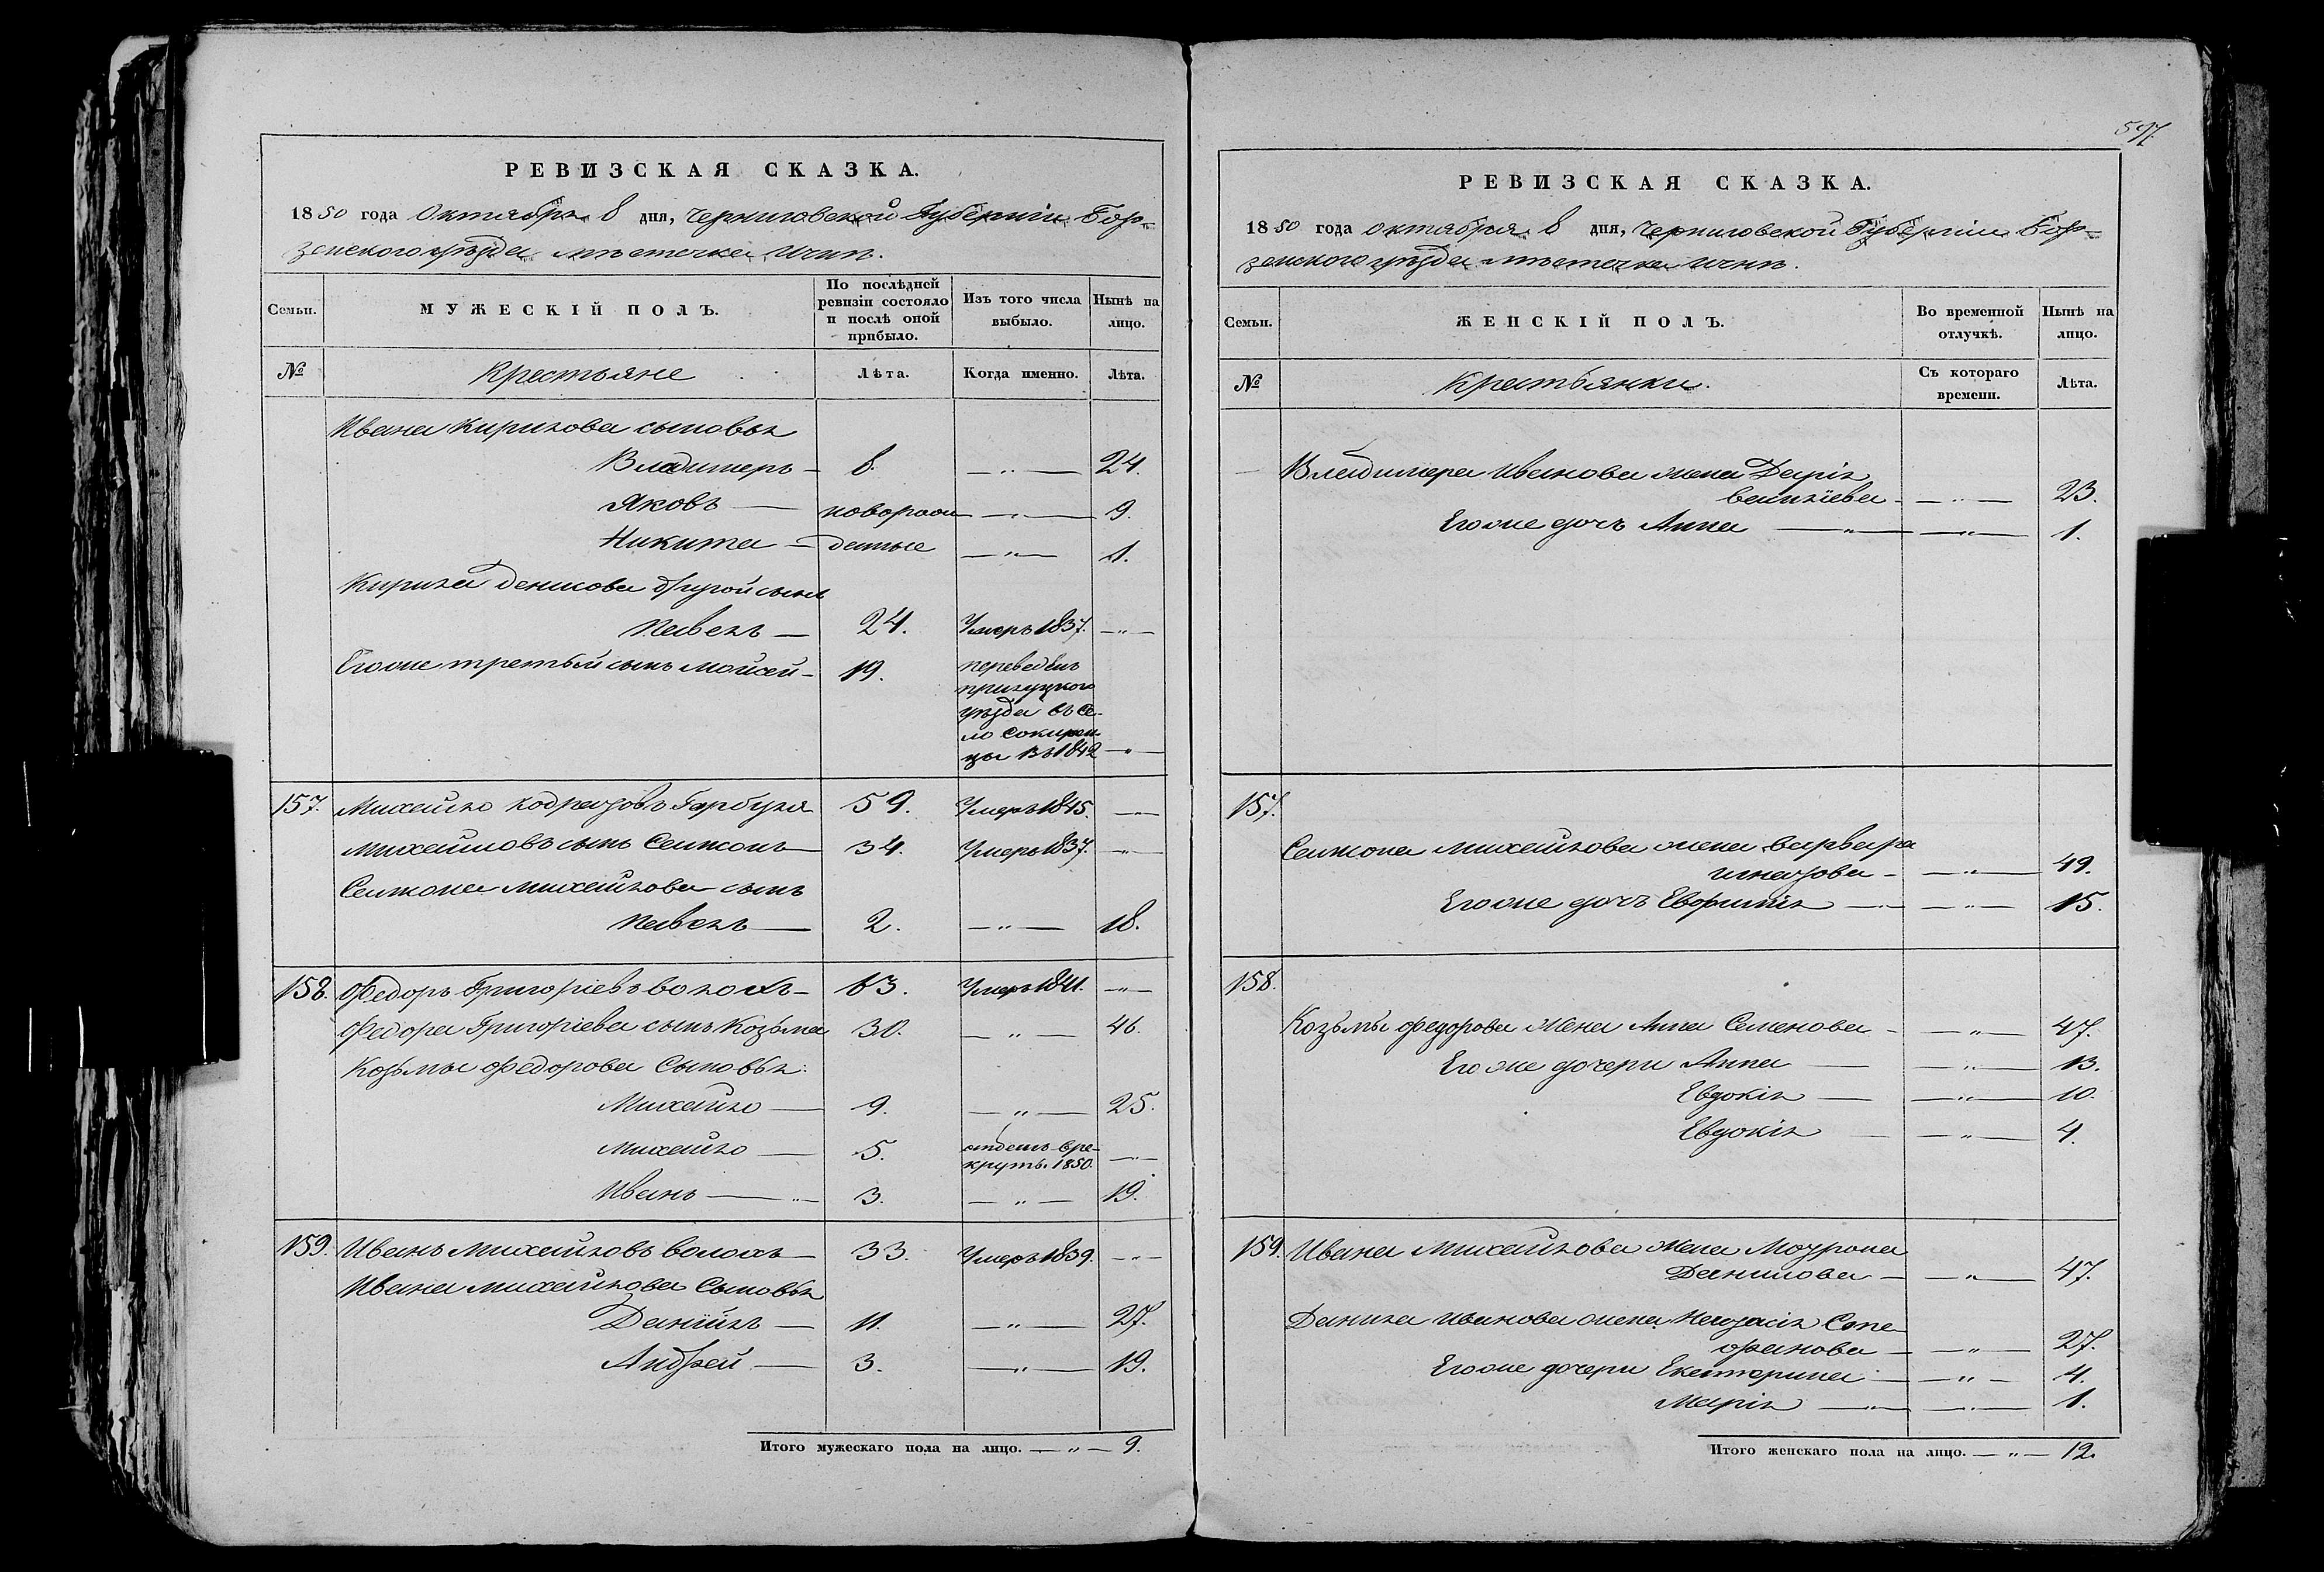 РЕВИЗСКАЯ СКАЗКА.
1850 года Октября 8 дня, Черниговской Губерніи Бор-
зенского уѣзда мѣстечка Ични.
Семьи.
МУЖЕСКІЙ ПОЛЪ.
По послѣдней ревизіи состояло и послѣ оной прибыло.
Изъ того числа выбыло.
Нынѣ на лицо.
№
Крестьяне
Лѣта.
Когда именно.
Лѣта.
Ивана Кирилова сыновья
Владимеръ — 8. — „ — 24.
Яковъ — новорож — „ — 9.
Никита — денные — „ — 1.
Кирила Денисова другой сынъ
Павелъ — 24. Умеръ 1837. — „ —
Егоже третьй сынъ Мойсей — 19. переведенъ
прилуцкого
уѣзда въ се-
ло Сокирин-
цы въ 1842 — „ —
157. Михайло Гарбуза 59. Умеръ 1845. — „ —
Михайловъ сынъ Самсонъ — 34. Умеръ 1837. — „ —
Самсона Михайлова сынъ
Павелъ — 2. — „ — 18.
158. Федоръ Григоріевъ Волохъ — 63. Умеръ 1841. — „ —
Федора Григоріева сынъ Козьма 30. — „ — 46.
Козьмы Федорова Сыновья:
Михайло — 9. — „ — 25.
Михайло — 5. отданъ въ ре-
круты 1850. — „ —
Иванъ — „ — 3. — „ — 19.
159. Иванъ Михайловъ Волохъ — 33. Умеръ 1839. — „ —
Ивана Михайлова Сыновья
Данійлъ — 11. — „ — 27.
Андрей — 3. — „ — 19.
Итого мужескаго пола на лицо. — „ — 9.
597.
РЕВИЗСКАЯ СКАЗКА.
1850 года октября 8 дня, Черниговской Губерніи Бор-
зенского уѣзда мѣстечка Ични.
Семьи.
ЖЕНСКІЙ ПОЛЪ.
Во временной отлучкѣ.
Нынѣ на лицо.
№
Крестьянки.
Съ котораго времени.
Лѣта.
Владимера Иванова жена Дарія
Василіева — „ — 23.
Егоже дочъ Анна — „ — „ — 1.
157.
Самсона Михайлова жена Варвара
Игнатова — „ — 49.
Егоже дочъ Евфимія — „ — 15.
158.
Козьмы Федорова Жена Анна Семенова — „ — 47.
Егоже дочери Анна — „ — 13.
Евдокія — „ — 10.
Евдокія — „ — 4.
159. Ивана Михайлова Жена Мотрона
Данилова — „ — 47.
Данила Иванова жена Настасія Сте-
фанова — „ — 27.
Егоже дочери Екатерина — „ — 4.
Марія — „ — „ — 1.
Итого женскаго пола на лицо. — „ — 12.